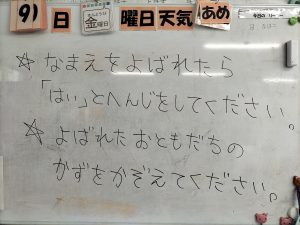 9 日 金 曜日 天気 あめ
☆ なまえをよばれたら
「はい」とへんじをしてください。
☆ よばれたおともだちの
かずをかぞえてください。